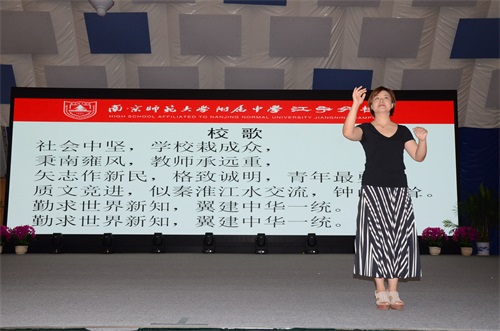 南京师范大学附属中学江宁分
HIGH SCHOOL AFFILIATED TO NANJING NORMAL UNIVERSITY JIANGNING
校 歌
社会中坚，学校栽成众，
秉南雍风，教师承远重，
矢志作新民，格致诚明，青年最
质文竞进，似秦淮江水交流，钟
勤求世界新知，翼建中华一统。
勤求世界新知，翼建中华一统。